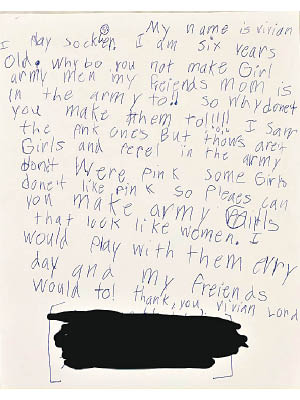 My name is vivian
I play socker. I am six years
Old. why bo you not make Girl
army men my freiends mom is
in the army to!! so why donet
you make them to!!!!! I saw
the pink ones But thows aret
Girls and peopel in the army
donet Were pink some Girls
donet like pink so Pleaes can
you make army Girls
that look like women. I
would play with them evry
day and my freiends
would to! thank, you Vivian Lord